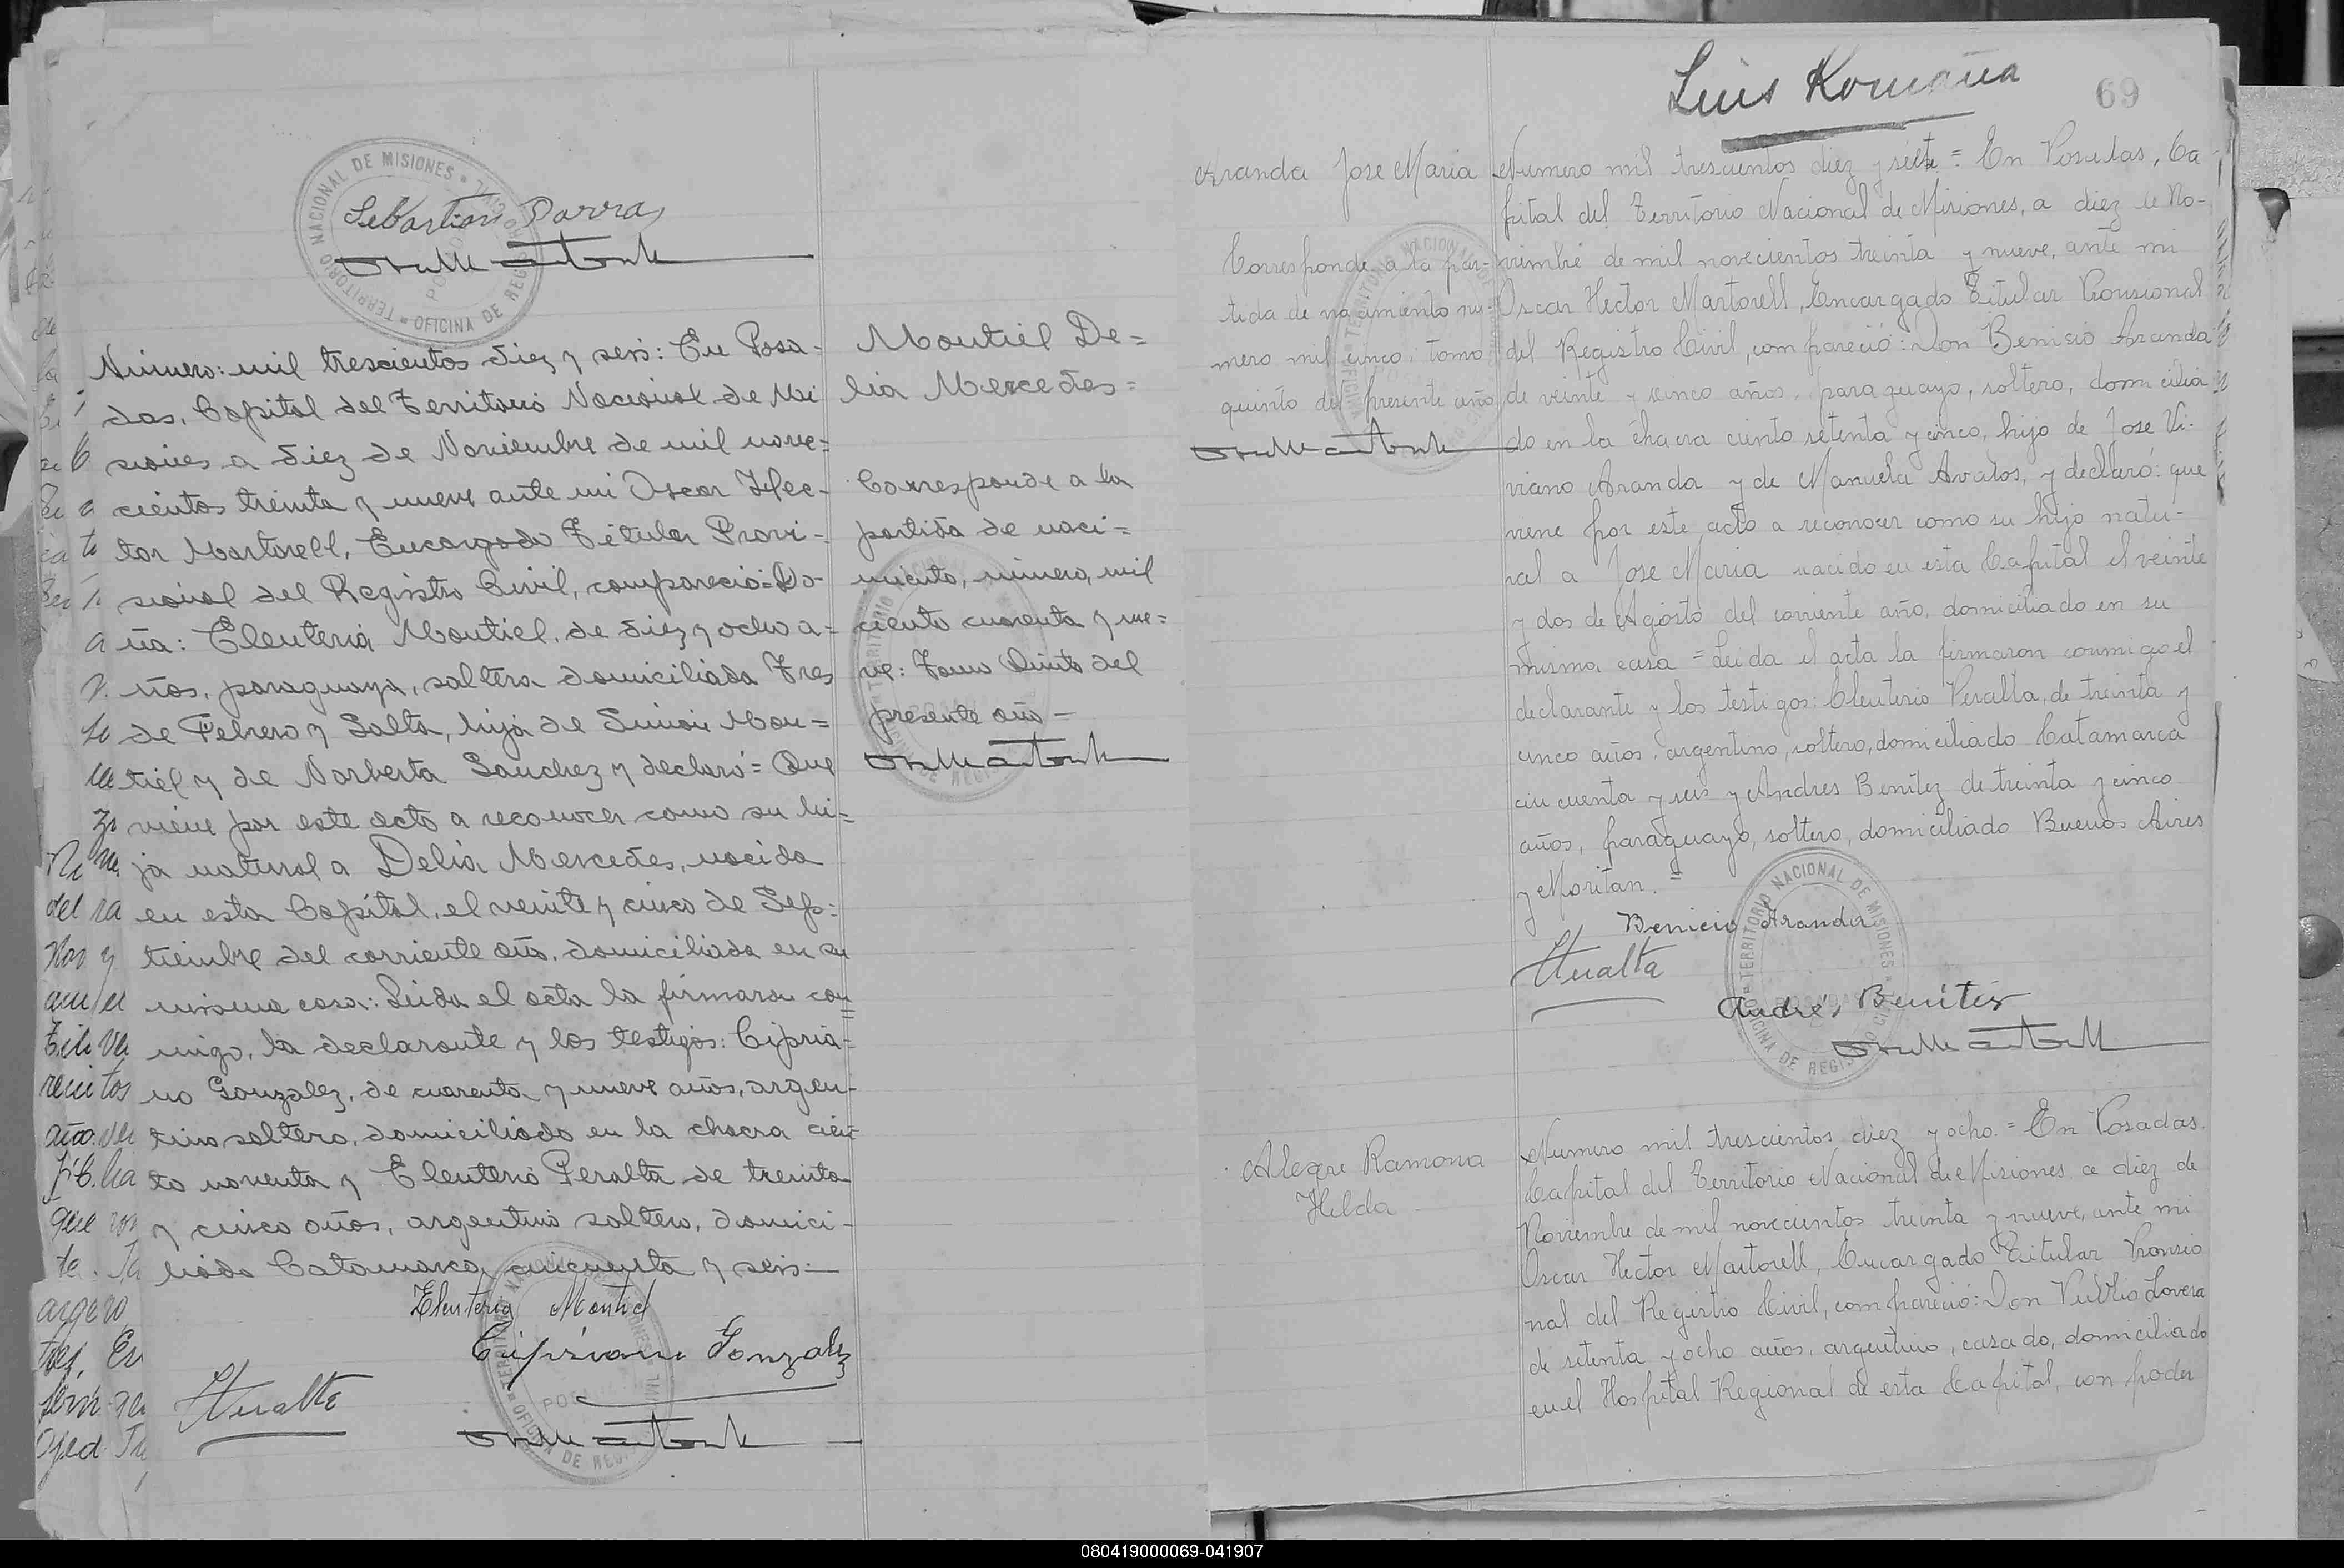 Sebastian Parra
Número: mil trescientos diez y seis: En Posa=
das, Capital del Territorio Nacional de Mi
siones a diez de Noviembre de mil nove=
cientos treinta y nueve ante mi Oscar Hec-
tor Martorell, Encargado Titular Provi-
sional del Registro Civil, compareció=Do-
ña: Eleuteria Montiel, de diez y ocho a=
ños, paraguaya, soltera domiciliada Tres
de Febrero y Salta, hija de Simón Mon=
tiel y de Norberta Sanchez y declaró= Que
viene por este acto a reconocer como su hi=
ja natural a Delia Mercedes, nacida
en esta Capital, el veinte y cinco de Sep=
tiembre del corriente año, domiciliada en su
misma casa: Leida el acta la firmaron con=
migo, la declarante y los testigos: Cipria=
no Gonzalez, de cuarenta y nueve años, argen-
tino soltero, domiciliado en la chacra cien
to noventa y Eleuterio Peralta de treinta
y cinco años, argentino soltero, domici-
liado Catamarca cincuenta y seis=
Eleuteria Montiel
Cipriano Gonzalez
Montiel De=
lia Mercedes=
Corresponde a la
partida de naci=
miento, número, mil
ciento cuarenta y nue=
ve: Tomo Quinto del
presente año-
TERRITORIO NACIONAL DE MISIONES
OFICINA DE REGISTRO CIVIL
POSADAS
Luis Romaña
69
Aranda Jose Maria
Corresponde a la par-
tida de nacimiento nu-
mero mil cinco, tomo
quinto del presente año
Numero mil trescientos diez y siete = En Posadas, Ca-
pital del Territorio Nacional de Misiones, a diez de No-
viembre de mil novecientos treinta y nueve, ante mi
Oscar Hector Martorell, Encargado Titular Provisional
del Registro Civil, compareció: Don Benicio Aranda
de veinte y cinco años, paraguayo, soltero, domicilia
do en la chacra ciento setenta y cinco, hijo de Jose Vi-
viano Aranda y de Manuela Avalos, y declaró: que
viene por este acto a reconocer como su hijo natu-
ral a Jose Maria nacido en esta Capital el veinte
y dos de Agosto del corriente año, domiciliado en su
misma casa = Leida el acta la firmaron conmigo el
declarante y los testigos: Eleuterio Peralta, de treinta y
cinco años, argentino, soltero, domiciliado Catamarca
cincuenta y seis y Andres Benitez de treinta y cinco
años, paraguayo, soltero, domiciliado Buenos Aires
y Moritan. =
Benicio Aranda
Andrés Benítez
TERRITORIO NACIONAL DE MISIONES
OFICINA DE REGISTRO CIVIL
Alegre Ramona
Hilda
Numero mil trescientos diez y ocho. = En Posadas.
Capital del Territorio Nacional de Misiones a diez de
Noviembre de mil novecientos treinta y nueve, ante mi
Oscar Hector Martorell, Encargado Titular Provisio
nal del Registro Civil, compareció: Don Publio Lovera
de setenta y ocho años, argentino, casado, domiciliado
en el Hospital Regional de esta Capital, con poder
080419000069-041907